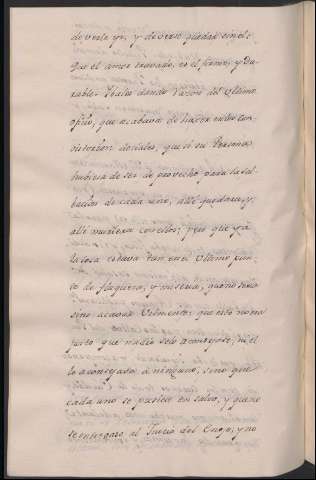 de verle yr, y de verse quedar sin el:
que el amor travado, es el firme, y du-
rable. Pedro dando razon del ultimo
oficio, que acabava de hacer en los con
sistorios dociales, que si su Persona
hubiera de ser de provecho para la sal-
vacion de cada uno, alli quedara, y
alli muriera con ellos; pero que ya
la cosa estava tan en el ultimo pun-
to de flaqueza, y miseria, que no seria
sino acavar vilmente: que esto no era
justo que nadie se lo aconsejase, ni el
lo aconsejava a ninguno, sino que
cada uno se pusiese en salvo, y que no
se entregase al Juicio del Enojo, y no